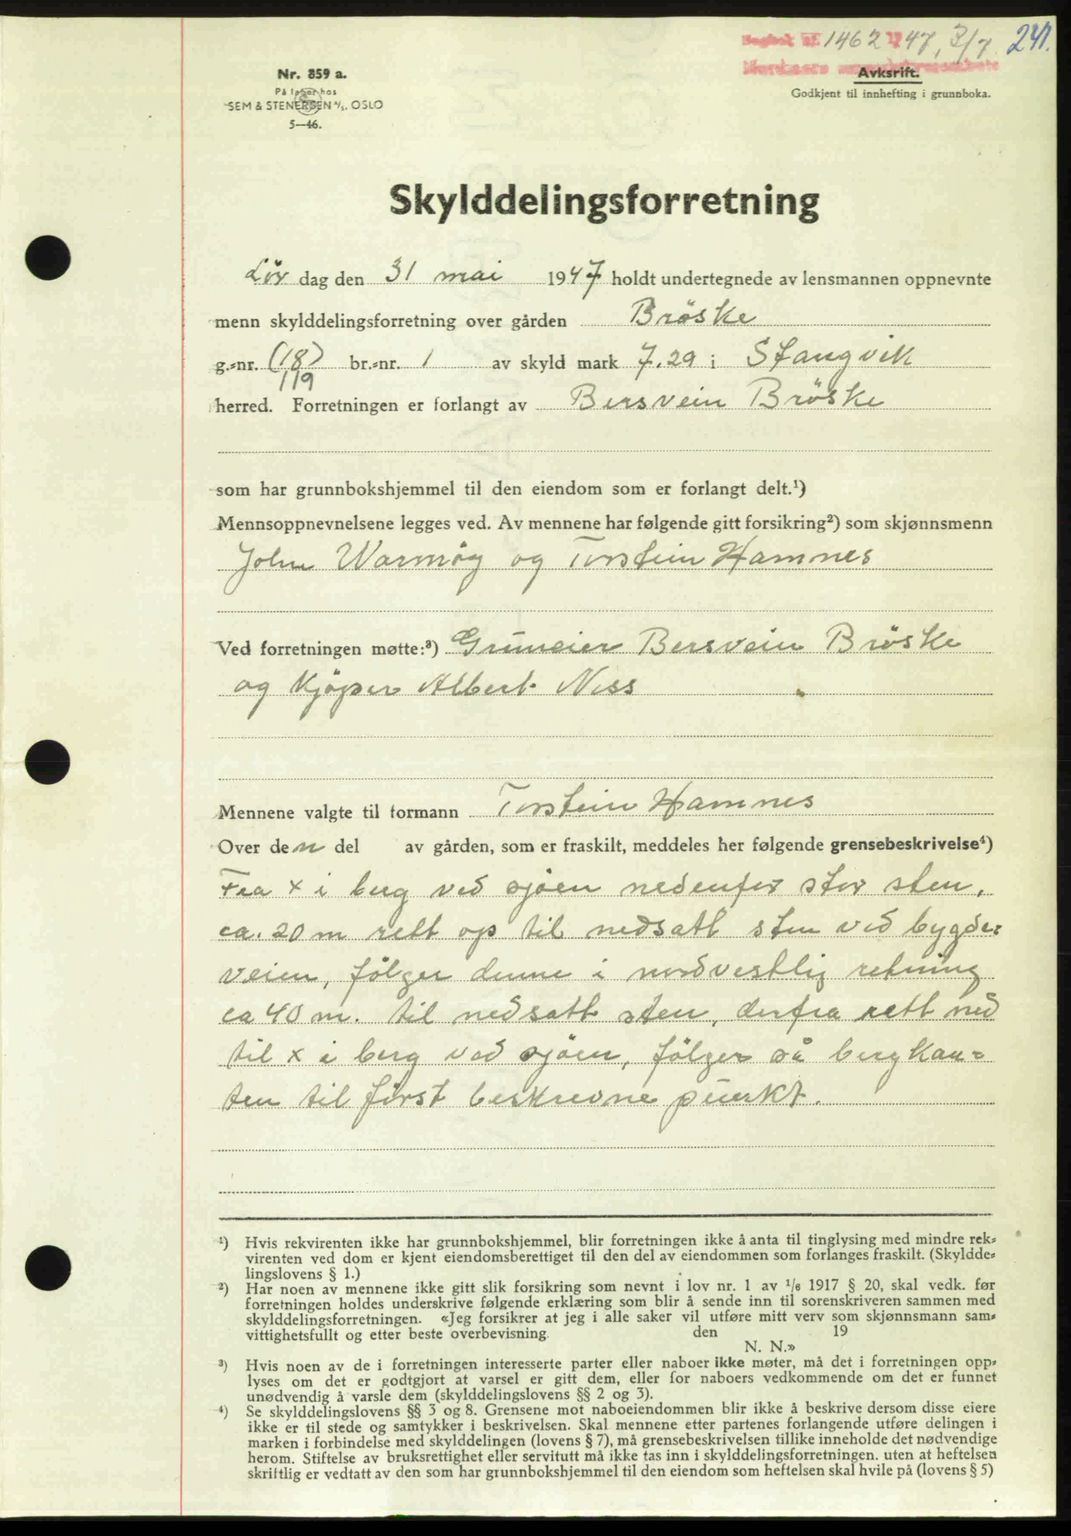 Dagbok nr. 1462 1947, 3/7 241.
Nordmøre sorenskriverembete
Nr. 859 a.
På lager hos
SEM & STENERSEN A/S. OSLO
5—46.
Avksrift.
Godkjent til innhefting i grunnboka.
Skylddelingsforretning
Lör dag den 31 mai 1947 holdt undertegnede av lensmannen oppnevnte
menn skylddelingsforretning over gården Bröske
g.-nr. (18) br.-nr. 1 av skyld mark 7.29 i Stangvik
119
herred. Forretningen er forlangt av Bersvein Bröske
som har grunnbokshjemmel til den eiendom som er forlangt delt.¹)
Mennsoppnevnelsene legges ved. Av mennene har følgende gitt forsikring²) som skjønnsmenn
John Warmög og Torstein Hamnes
Ved forretningen møtte:³) Gruneier Bersvein Bröske
og kjöper Albert Ness
Mennene valgte til formann Torstein Hamnes
Over den del av gården, som er fraskilt, meddeles her følgende grensebeskrivelse⁴)
Fra x i berg ved sjöen nedenfor stor sten,
ca. 20 m rett op til nedsatt sten ved bygde-
veien, fölger denne i nordvestlig retning
ca 40 m. til nedsatt sten, derfra rett ned
til x i berg ved sjöen, fölger så bergkan-
ten til först beskrevne punkt.
¹) Hvis rekvirenten ikke har grunnbokshjemmel, blir forretningen ikke å anta til tinglysing med mindre rek-
virenten ved dom er kjent eiendomsberettiget til den del av eiendommen som forlanges fraskilt. (Skyldde-
lingslovens § 1.)
²) Har noen av mennene ikke gitt slik forsikring som nevnt i lov nr. 1 av 1/6 1917 § 20, skal vedk. før
forretningen holdes underskrive følgende erklæring som blir å sende inn til sorenskriveren sammen med
skylddelingsforretningen. «Jeg forsikrer at jeg i alle saker vil utføre mitt verv som skjønnsmann sam-
vittighetsfullt og etter beste overbevisning. den 19
N. N.»
³) Hvis noen av de i forretningen interesserte parter eller naboer ikke møter, må det i forretningen opp-
lyses om det er godtgjort at varsel er gitt dem, eller for naboers vedkommende om det er funnet
unødvendig å varsle dem (skylddelingslovens §§ 2 og 3).
⁴) Se skylddelingslovens §§ 3 og 8. Grensene mot naboeiendommen blir ikke å beskrive dersom disse eiere
ikke er til stede og samtykker i beskrivelsen. Skal mennene etter partenes forlangende utføre delingen i
marken i forbindelse med skylddelingen (lovens § 7), må grensebeskrivelsen tillike inneholde det nødvendige
herom. Stiftelse av bruksrettighet eller servitutt må ikke tas inn i skylddelingsforretningen, uten at heftelsen
skriftlig er vedtatt av den som har grunnbokshjemmel til den eiendom som heftelsen skal hvile på (lovens § 5)